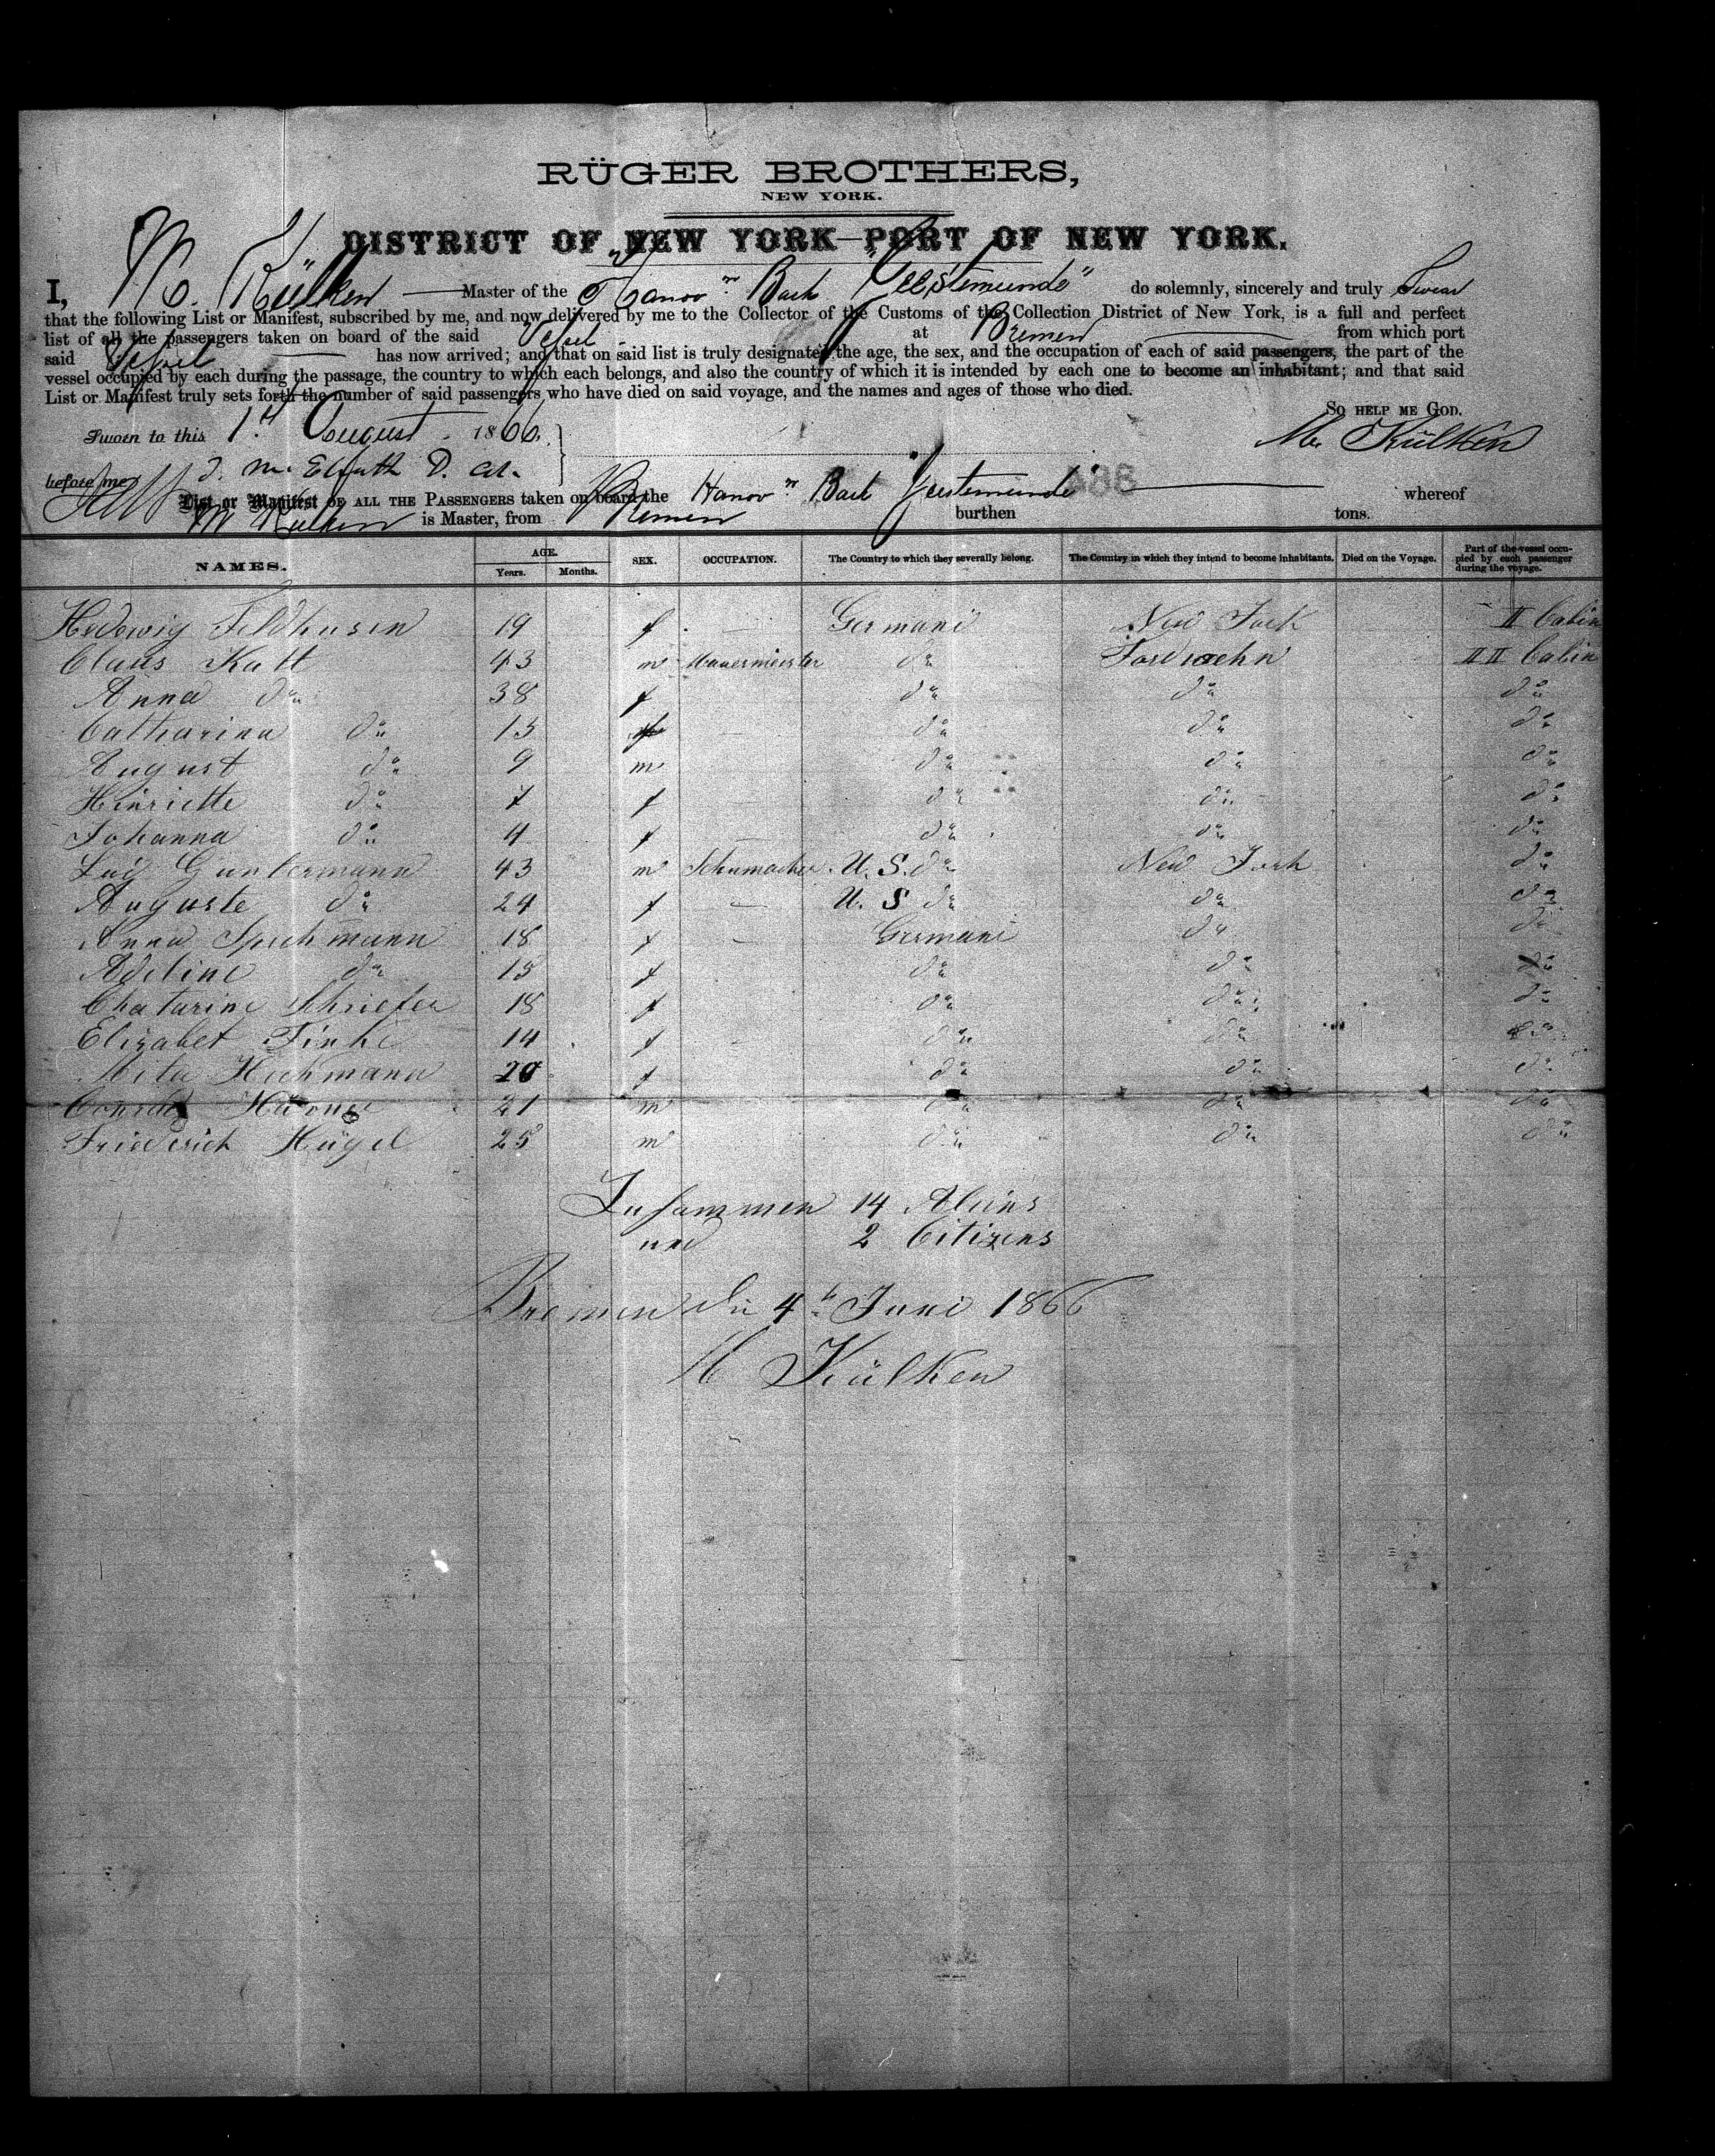 RÜGER BROTHERS,
NEW YORK.
DISTRICT OF NEW YORK—PORT OF NEW YORK.
I, M. Külken Master of the Hanov n Bark "Geestemünde" do solemnly, sincerely and truly Swear
that the following List or Manifest, subscribed by me, and now delivered by me to the Collector of the Customs of the Collection District of New York, is a full and perfect
list of all the passengers taken on board of the said Vessel at Bremen from which port
said Vessel has now arrived; and that on said list is truly designated the age, the sex, and the occupation of each of said passengers, the part of the
vessel occupied by each during the passage, the country to which each belongs, and also the country of which it is intended by each one to become an inhabitant; and that said
List or Manifest truly sets forth the number of said passengers who have died on said voyage, and the names and ages of those who died.
So help me God.
Sworn to this 1st August 1866. M. Külken
before me D. Col.
List or Manifest OF ALL THE PASSENGERS taken on board the Hanov n Bark Geestemünde whereof
M Külken is Master, from Bremen burthen tons.
NAMES. AGE. Years. Months. SEX. OCCUPATION. The Country to which they severally belong. The Country in which they intend to become inhabitants. Died on the Voyage. Part of the vessel occupied by each passenger during the voyage.
Hedewig Feldhusen 19 f — Germani New York II Cabin
Claus Katt 43 m Mauermeister do II II Cabin
Anna do 38 f do do do
Catharina do 13 f — do do do
August do 9 m do do do
Henriette do 7 f do do do
Johanna do 4 f — do do do
Guntermann 43 m Schumacher U. S. do New York do
Auguste do 24 f — U. S do do do
Anna Speckmann 18 f — Germani do do
Adeline do 15 f do do do
Chatarine Schriefer 18 f do do do
Elizabet Tinke 14 f do do do
Meta Heckmann 20 f do do do
Conrad 21 m do do do
Friederich Hügel 25 m do do do
Zusammen 14 Aliens
und 2 Citizens
Bremen die 4t Juni 1866
M Külken